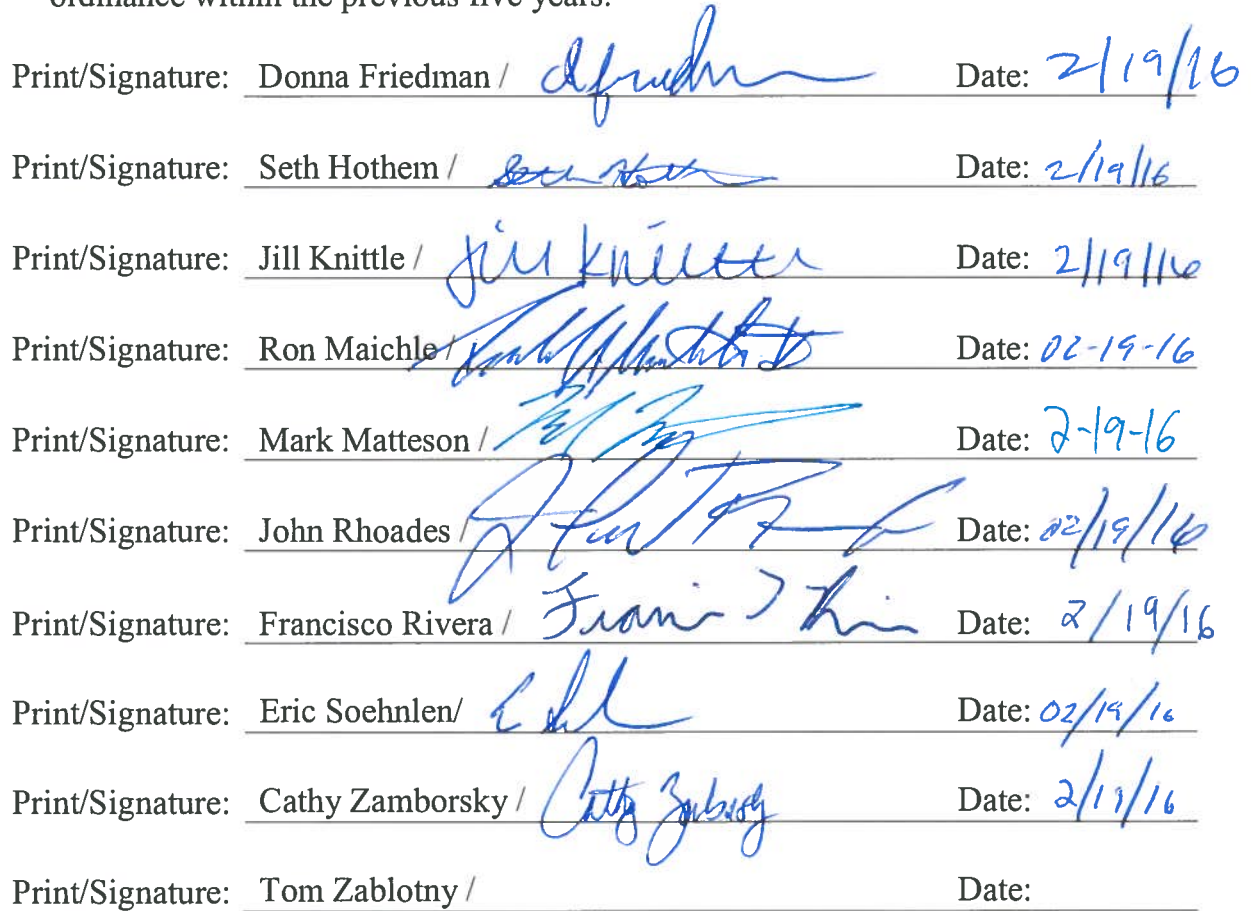 ordinance within the previous five years.
Print/Signature: Donna Friedman / Date: 2/19/16
Print/Signature: Seth Hothem / Seth Hoth Date: 2/19/16
Print/Signature: Jill Knittle / Jill Knittle Date: 2/19/16
Print/Signature: Ron Maichle / Date: 02-19-16
Print/Signature: Mark Matteson / Date: 2-19-16
Print/Signature: John Rhoades / Date: 02/19/16
Print/Signature: Francisco Rivera / Date: 2/19/16
Print/Signature: Eric Soehnlen/ Date: 02/19/16
Print/Signature: Cathy Zamborsky / Cathy Date: 2/19/16
Print/Signature: Tom Zablotny / Date: